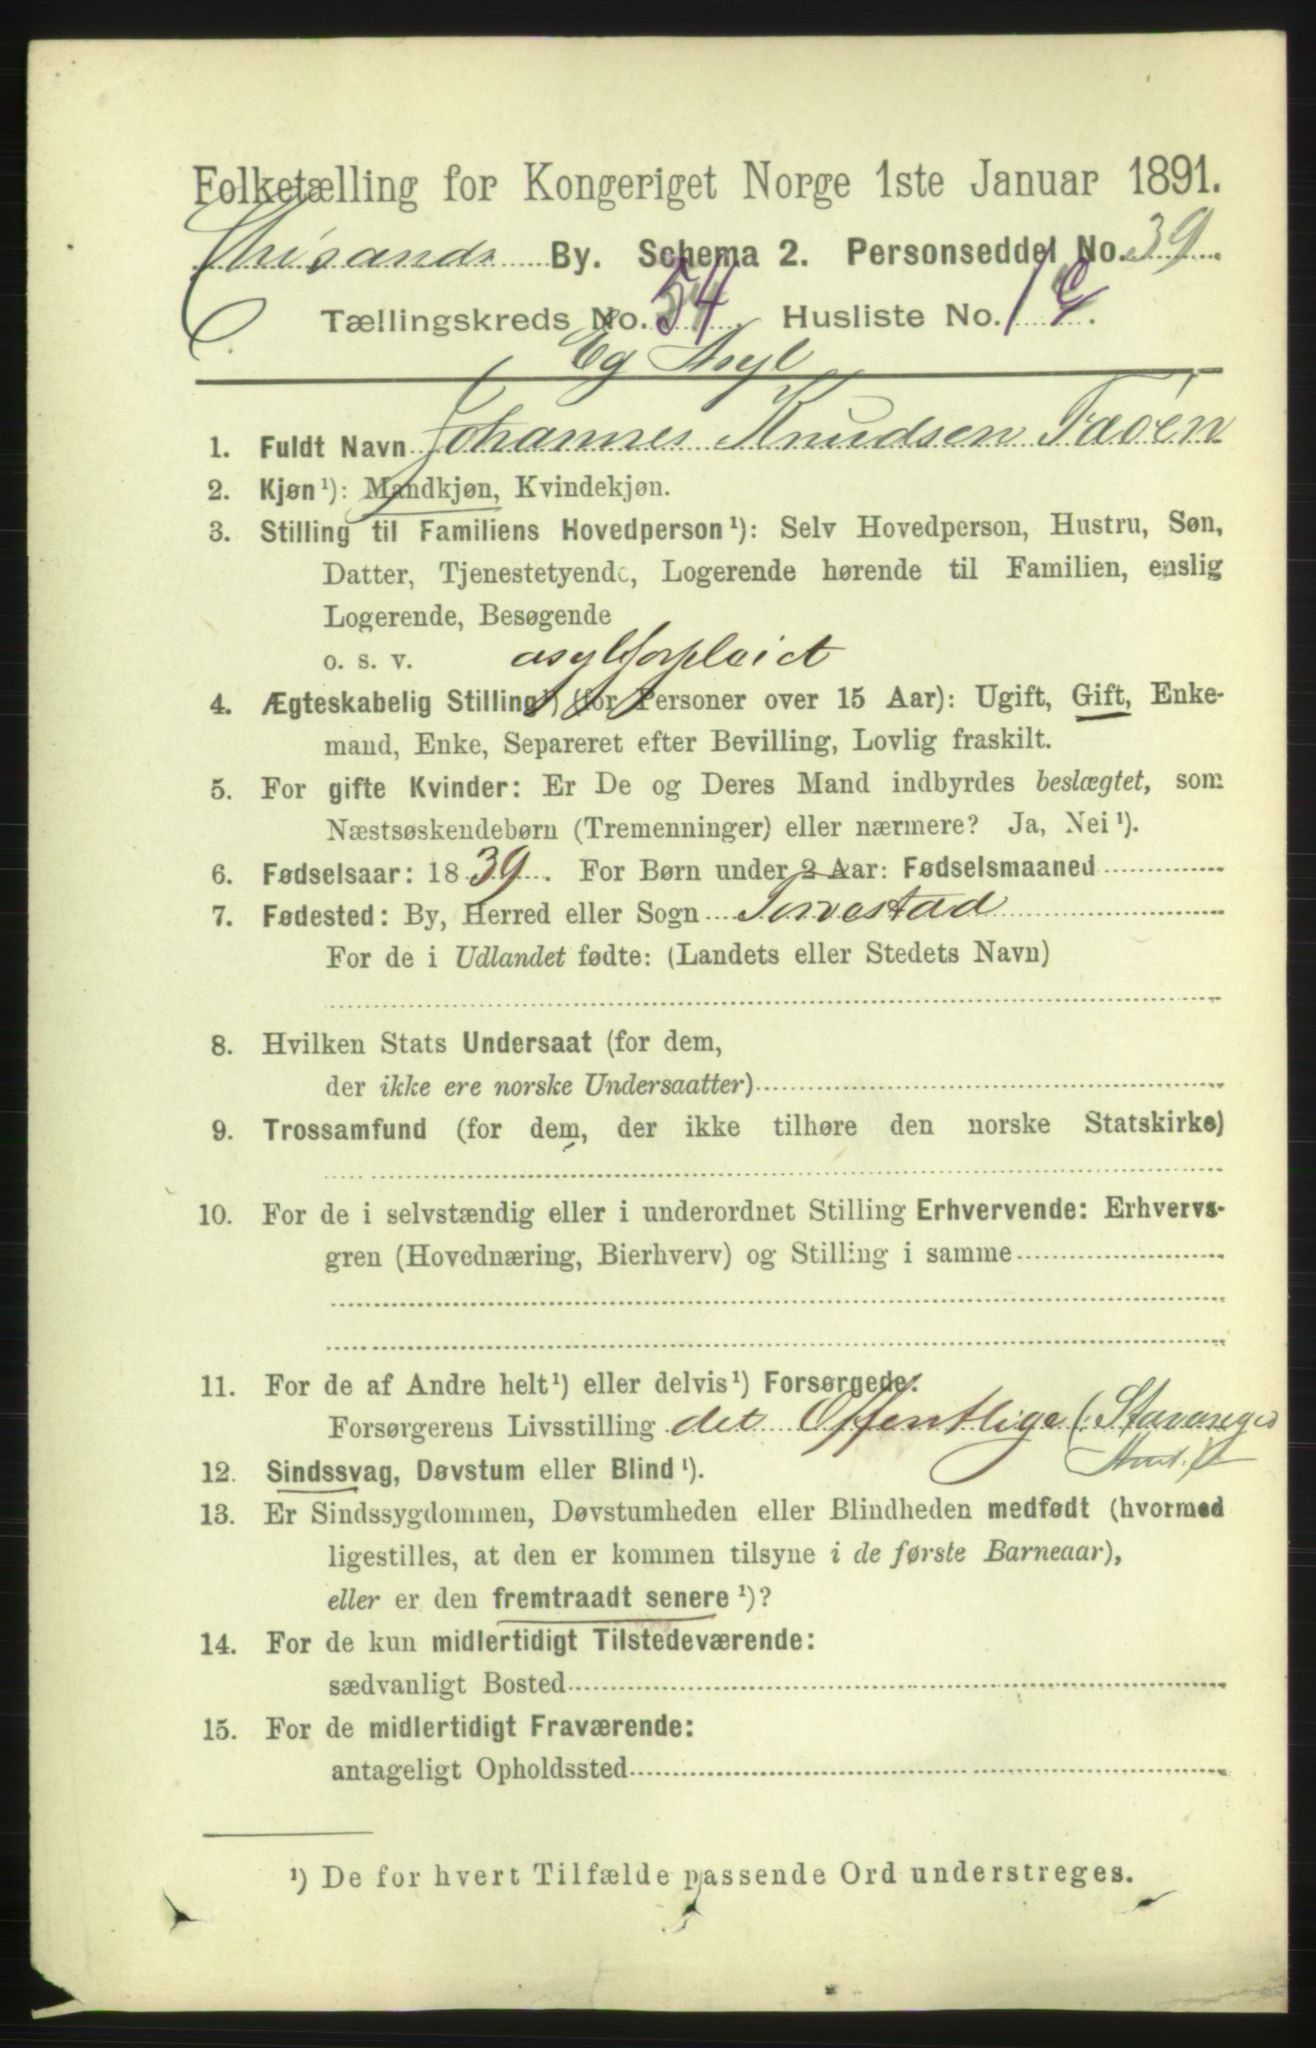 Folketælling for Kongeriget Norge 1ste Januar 1891.
Chrisands By. Schema 2. Personseddel No. 39
Tællingskreds No. 54. Husliste No. 1
Eg Asyl
1. Fuldt Navn Johannes Knudsen Faöen
2. Kjøn¹): Mandkjøn, Kvindekjøn.
3. Stilling til Familiens Hovedperson¹): Selv Hovedperson, Hustru, Søn,
Datter, Tjenestetyende, Logerende hørende til Familien, enslig
Logerende, Besøgende
o. s. v. asylforpleiet
4. Ægteskabelig Stilling¹) (for Personer over 15 Aar): Ugift, Gift, Enke-
mand, Enke, Separeret efter Bevilling, Lovlig fraskilt.
5. For gifte Kvinder: Er De og Deres Mand indbyrdes beslægtet, som
Næstsøskendebørn (Tremenninger) eller nærmere? Ja, Nei¹).
6. Fødselsaar: 1839. For Børn under 2 Aar: Fødselsmaaned
7. Fødested: By, Herred eller Sogn Torvestad
For de i Udlandet fødte: (Landets eller Stedets Navn)
8. Hvilken Stats Undersaat (for dem,
der ikke ere norske Undersaatter)
9. Trossamfund (for dem, der ikke tilhøre den norske Statskirke)
10. For de i selvstændig eller i underordnet Stilling Erhvervende: Erhvervs-
gren (Hovednæring, Bierhverv) og Stilling i samme
11. For de af Andre helt¹) eller delvis¹) Forsørgede:
Forsørgerens Livsstilling det Offentlige (Stavanger
Amt.)
12. Sindssvag, Døvstum eller Blind¹).
13. Er Sindssygdommen, Døvstumheden eller Blindheden medfødt (hvormed
ligestilles, at den er kommen tilsyne i de første Barneaar),
eller er den fremtraadt senere¹)?
14. For de kun midlertidigt Tilstedeværende:
sædvanligt Bosted
15. For de midlertidigt Fraværende:
antageligt Opholdssted
¹) De for hvert Tilfælde passende Ord understreges.